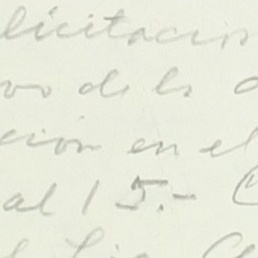 licitacion
vo de la
cion en el
al 15.-